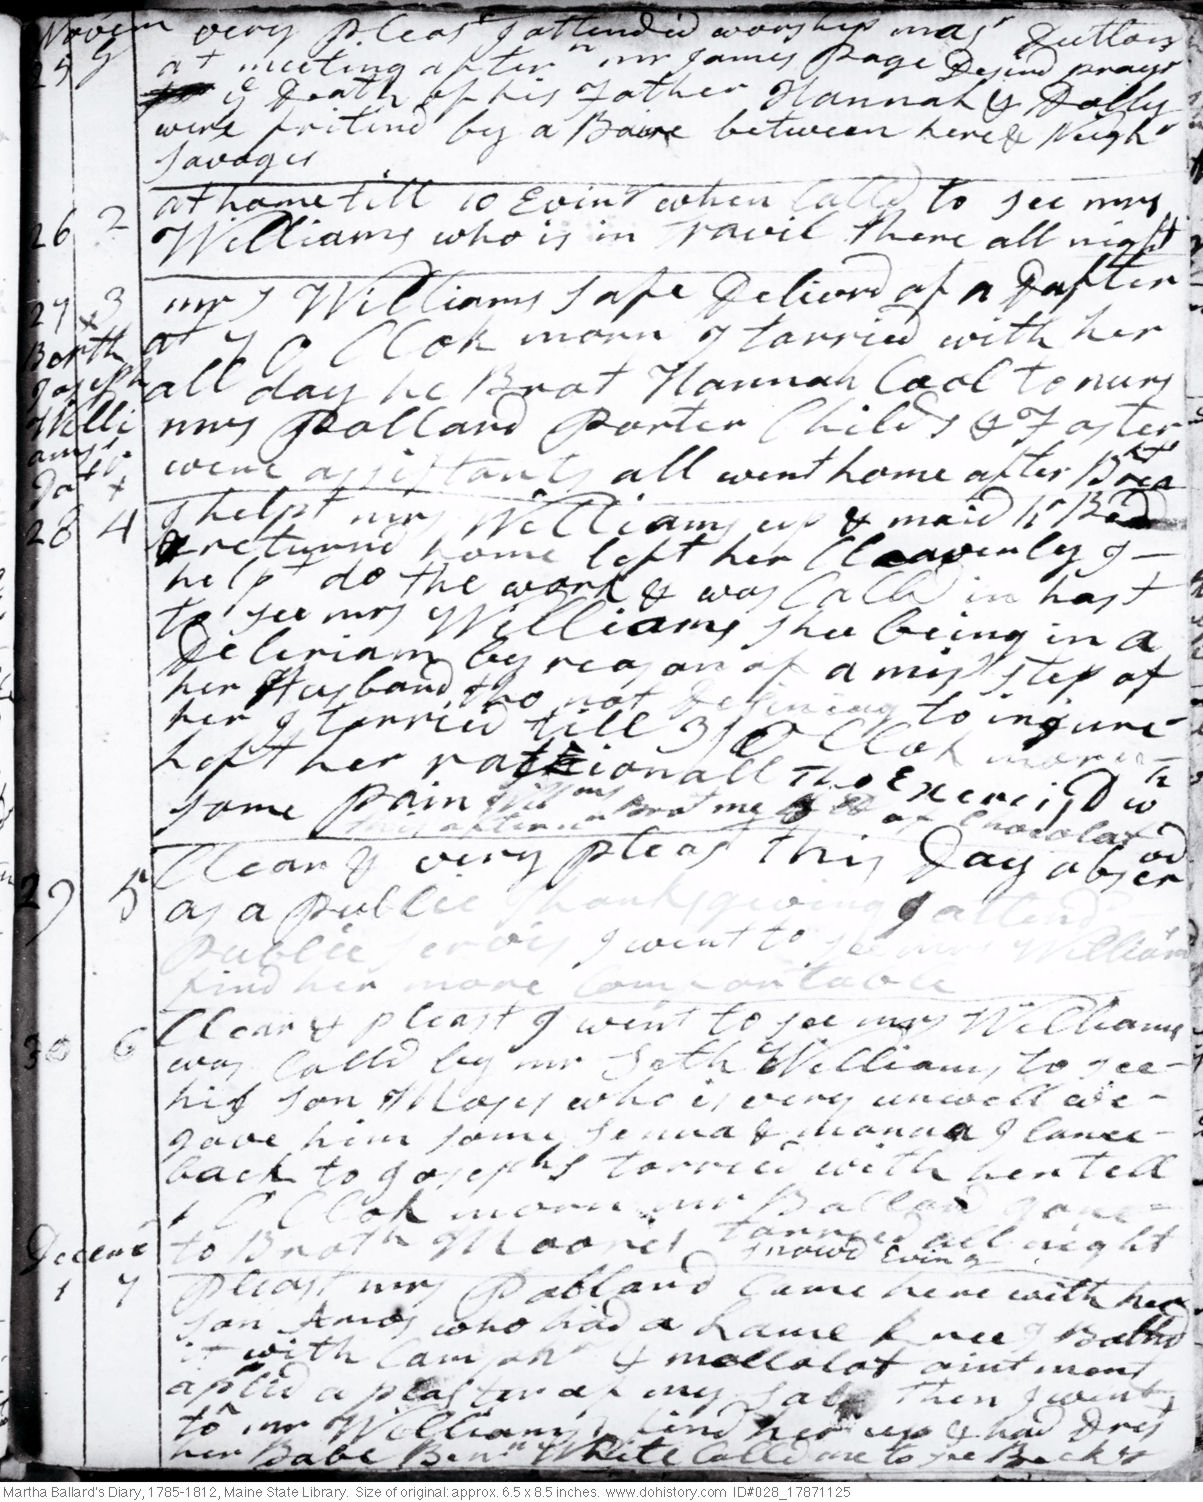 Novem
25 G very pleast I attend'd worship mas Dutton
at meeting aftern mr James Page Desird prayr
ye Death of his Father Hannah & Dolly
were fritind by a Baire between here & Neighr
Savages
26 2 at home till 10 Evint when Calld to see mrs
Williams who is in Travil there all night
27 3 mrs Williams safe Deliverd of a Dafter
Berth Joseph Williams Datr
at 7 O Clok morn I tarried with her
all day he Brot Hannah Cool to nurs
mrs Pollard Porter Childs & Foster
were assistants all went home after Brea
28 4 I helpt mrs Williams up & maid hr Bed
& returnd home left her Cleaverly I
help't do the work & was Calld in hast
to see mrs Williams shee being in a
Deliriam by reason of a miss step of
her Husband tho not Desining to injure
her I tarried till 3 O Clok morn
left her rationall tho Exercisd wth
some pain
this aftern Brot me of Chocolat
29 5 Clear & very pleast this Day obserd
as a publick Thanksgiving I attend
publick servis I went to see mrs Williams
find her more Comfortable
30 6 Clear & pleast I went to see mrs Williams
was Calld by mr Seth Williams to see
his son Moses who is very unwell we
gave him some senna & manna I came
back to Josephs tarried with her till
1 O Clok morn mr Ballard gone
to Broth Moores tarried all night
snowd Evinng
Decemb
1 7 pleast mrs Pollard Came here with her
son Amos who had a Lame knee I Bathd
it with Camphr & mellolot aintment
aplied a plaster of my salv then I went
to mr Williams find her up & had Drest
her Babe Benn White Calld me to see Becky
Martha Ballard's Diary, 1785-1812, Maine State Library. Size of original: approx. 6.5 x 8.5 inches. www.dohistory.com ID#028_17871125